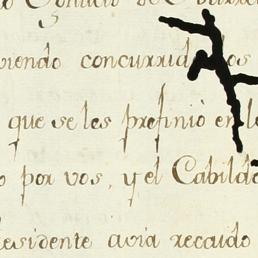 de
viendo concurrido los
que se les prefinió en
por vos, y el Cabildo
residente avia recaido